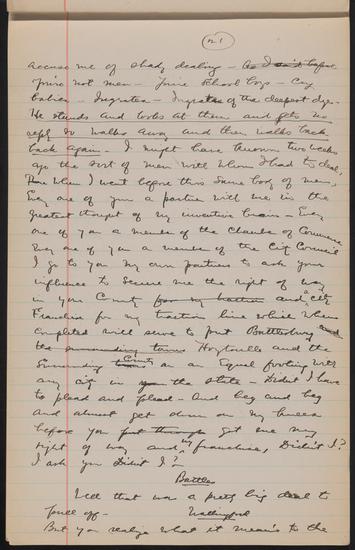 21
accuse me of shady dealing –
You're not men – You're school boys – Cry
babies – Ingrates – Ingrates of the deepest dye.
He stands and looks at them and gets no
reply so walks away and then walks back
back again. I might have known two weeks
ago the sort of men with whom I had to deal,
When I went before this same body of men,
Every one of you a partner with me in the
greatest thought of my inventive brain – Every
one of you a member of the Chamber of Commerce
Every one of you a member of the City Council
I go to you my own partners to ask your
influence to secure me the right of way
in your County for my traction and City
Franchise for my traction line which when
completed will serve to put Battlesburg and
the surrounding towns Hoytville and the
Surrounding County on an Equal footing with
any city in the State – Didn't I have
to plead and plead – and beg and beg
and almost get down on my knees
before you just through get me my
right of way and my franchise, Didn't I?
I ask you Didn't I?
Battles
Well that was a pretty big deal to
pull off –
Wallingford
But you realize what it means to the